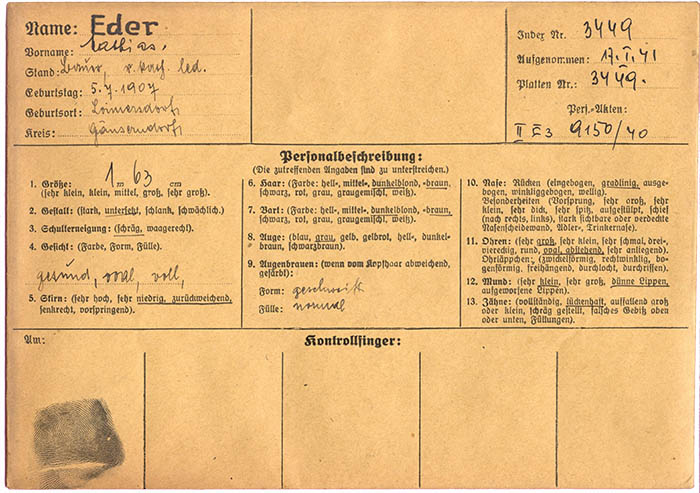 Name: Eder
Vorname: Mathias.
Stand: Bauer, r. kath. led.
Geburtstag: 5.7.1907
Geburtsort: Loimersdorf,
Kreis: Gänserndorf,
Index Nr. 3449
Aufgenommen: 17.I.41
Platten Nr.: 3449.
Pers.-Akten:
II E3 9150/40
Personalbeschreibung:
(Die zutreffenden Angaben sind zu unterstreichen.)
1. Größe: 1 m 63 cm
(sehr klein, klein, mittel, groß, sehr groß).
2. Gestalt: (stark, untersetzt, schlank, schwächlich.)
3. Schulterneigung: (schräg, waagerecht).
4. Gesicht: (Farbe, Form, Fülle).
gesund, oval, voll,
5. Stirn: (sehr hoch, sehr niedrig, zurückweichend,
senkrecht, vorspringend).
6. Haar: (Farbe: hell-, mittel-, dunkelblond, -braun,
schwarz, rot, grau, graugemischt, weiß).
7. Bart: (Farbe: hell-, mittel-, dunkelblond, -braun,
schwarz, rot, grau, graugemischt, weiß).
8. Auge: (blau, grau, gelb, gelbrot, hell-, dunkel-
braun, schwarzbraun).
9. Augenbrauen: (wenn vom Kopfhaar abweichend,
gefärbt):
Form: geschweift
Fülle: normal
10. Nase: Rücken (eingebogen, gradlinig, ausge-
bogen, winkliggebogen, wellig).
Besonderheiten (Vorsprung, sehr groß, sehr
klein, sehr dick, sehr spitz, aufgestülpt, schief
(nach rechts, links), stark sichtbare oder verdeckte
Nasenscheidewand, Adler-, Trinkernase).
11. Ohren: (sehr groß, sehr klein, sehr schmal, drei-,
viereckig, rund, oval, abstehend, sehr anliegend).
Ohrläppchen: (zwickelförmig, rechtwinklig, bo-
genförmig, freihängend, durchlocht, durchrissen).
12. Mund: (sehr klein, sehr groß, dünne Lippen,
aufgeworfene Lippen).
13. Zähne: (vollständig, lückenhaft, auffallend groß
oder klein, schräg gestellt, falsches Gebiß oben
oder unten, Füllungen).
Am:
Kontrollfinger: